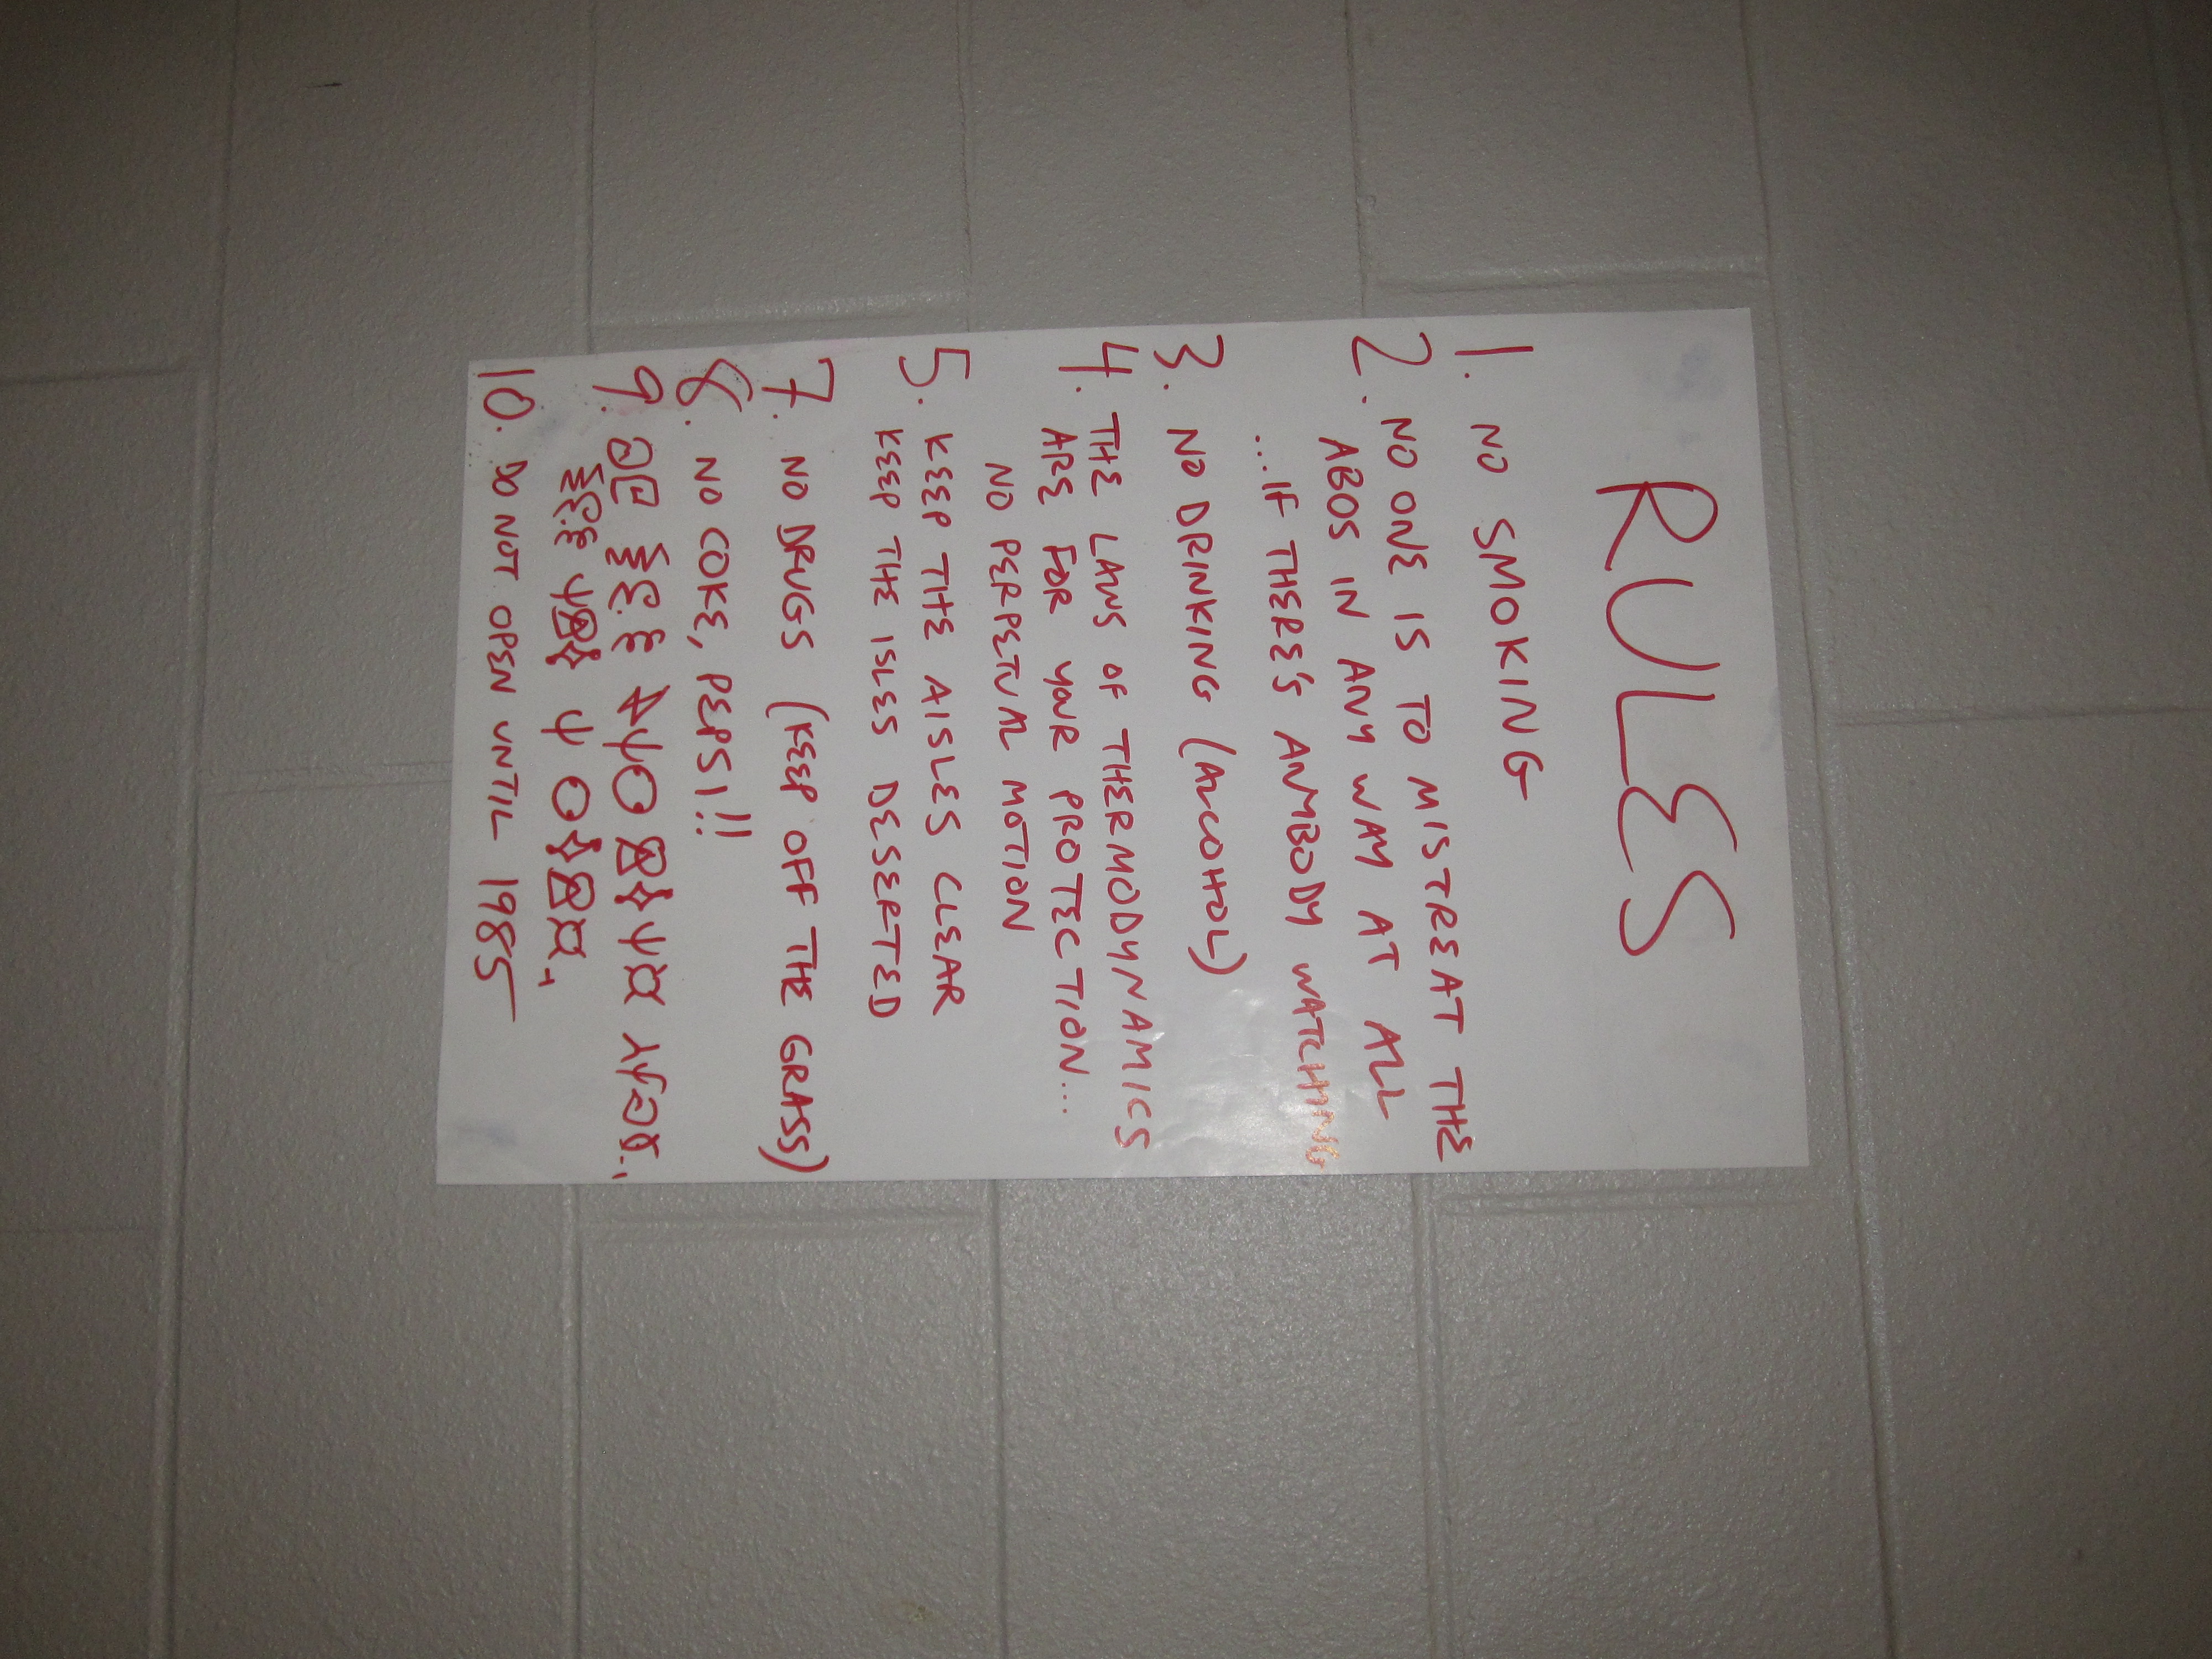 RULES
1. NO SMOKING
2. NO ONE IS TO MISTREAT THE
ABOS IN ANY WAY AT ALL
...IF THERE'S ANYBODY WATCHING
3. NO DRINKING (ALCOHOL)
4. THE LAWS OF THERMODYNAMICS
ARE FOR YOUR PROTECTION...
NO PERPETUAL MOTION
5. KEEP THE AISLES CLEAR
KEEP THE ISLES DESERTED
7. NO DRUGS (KEEP OFF THE GRASS)
8. NO COKE, PEPSI!!
9.
10. DO NOT OPEN UNTIL 1985